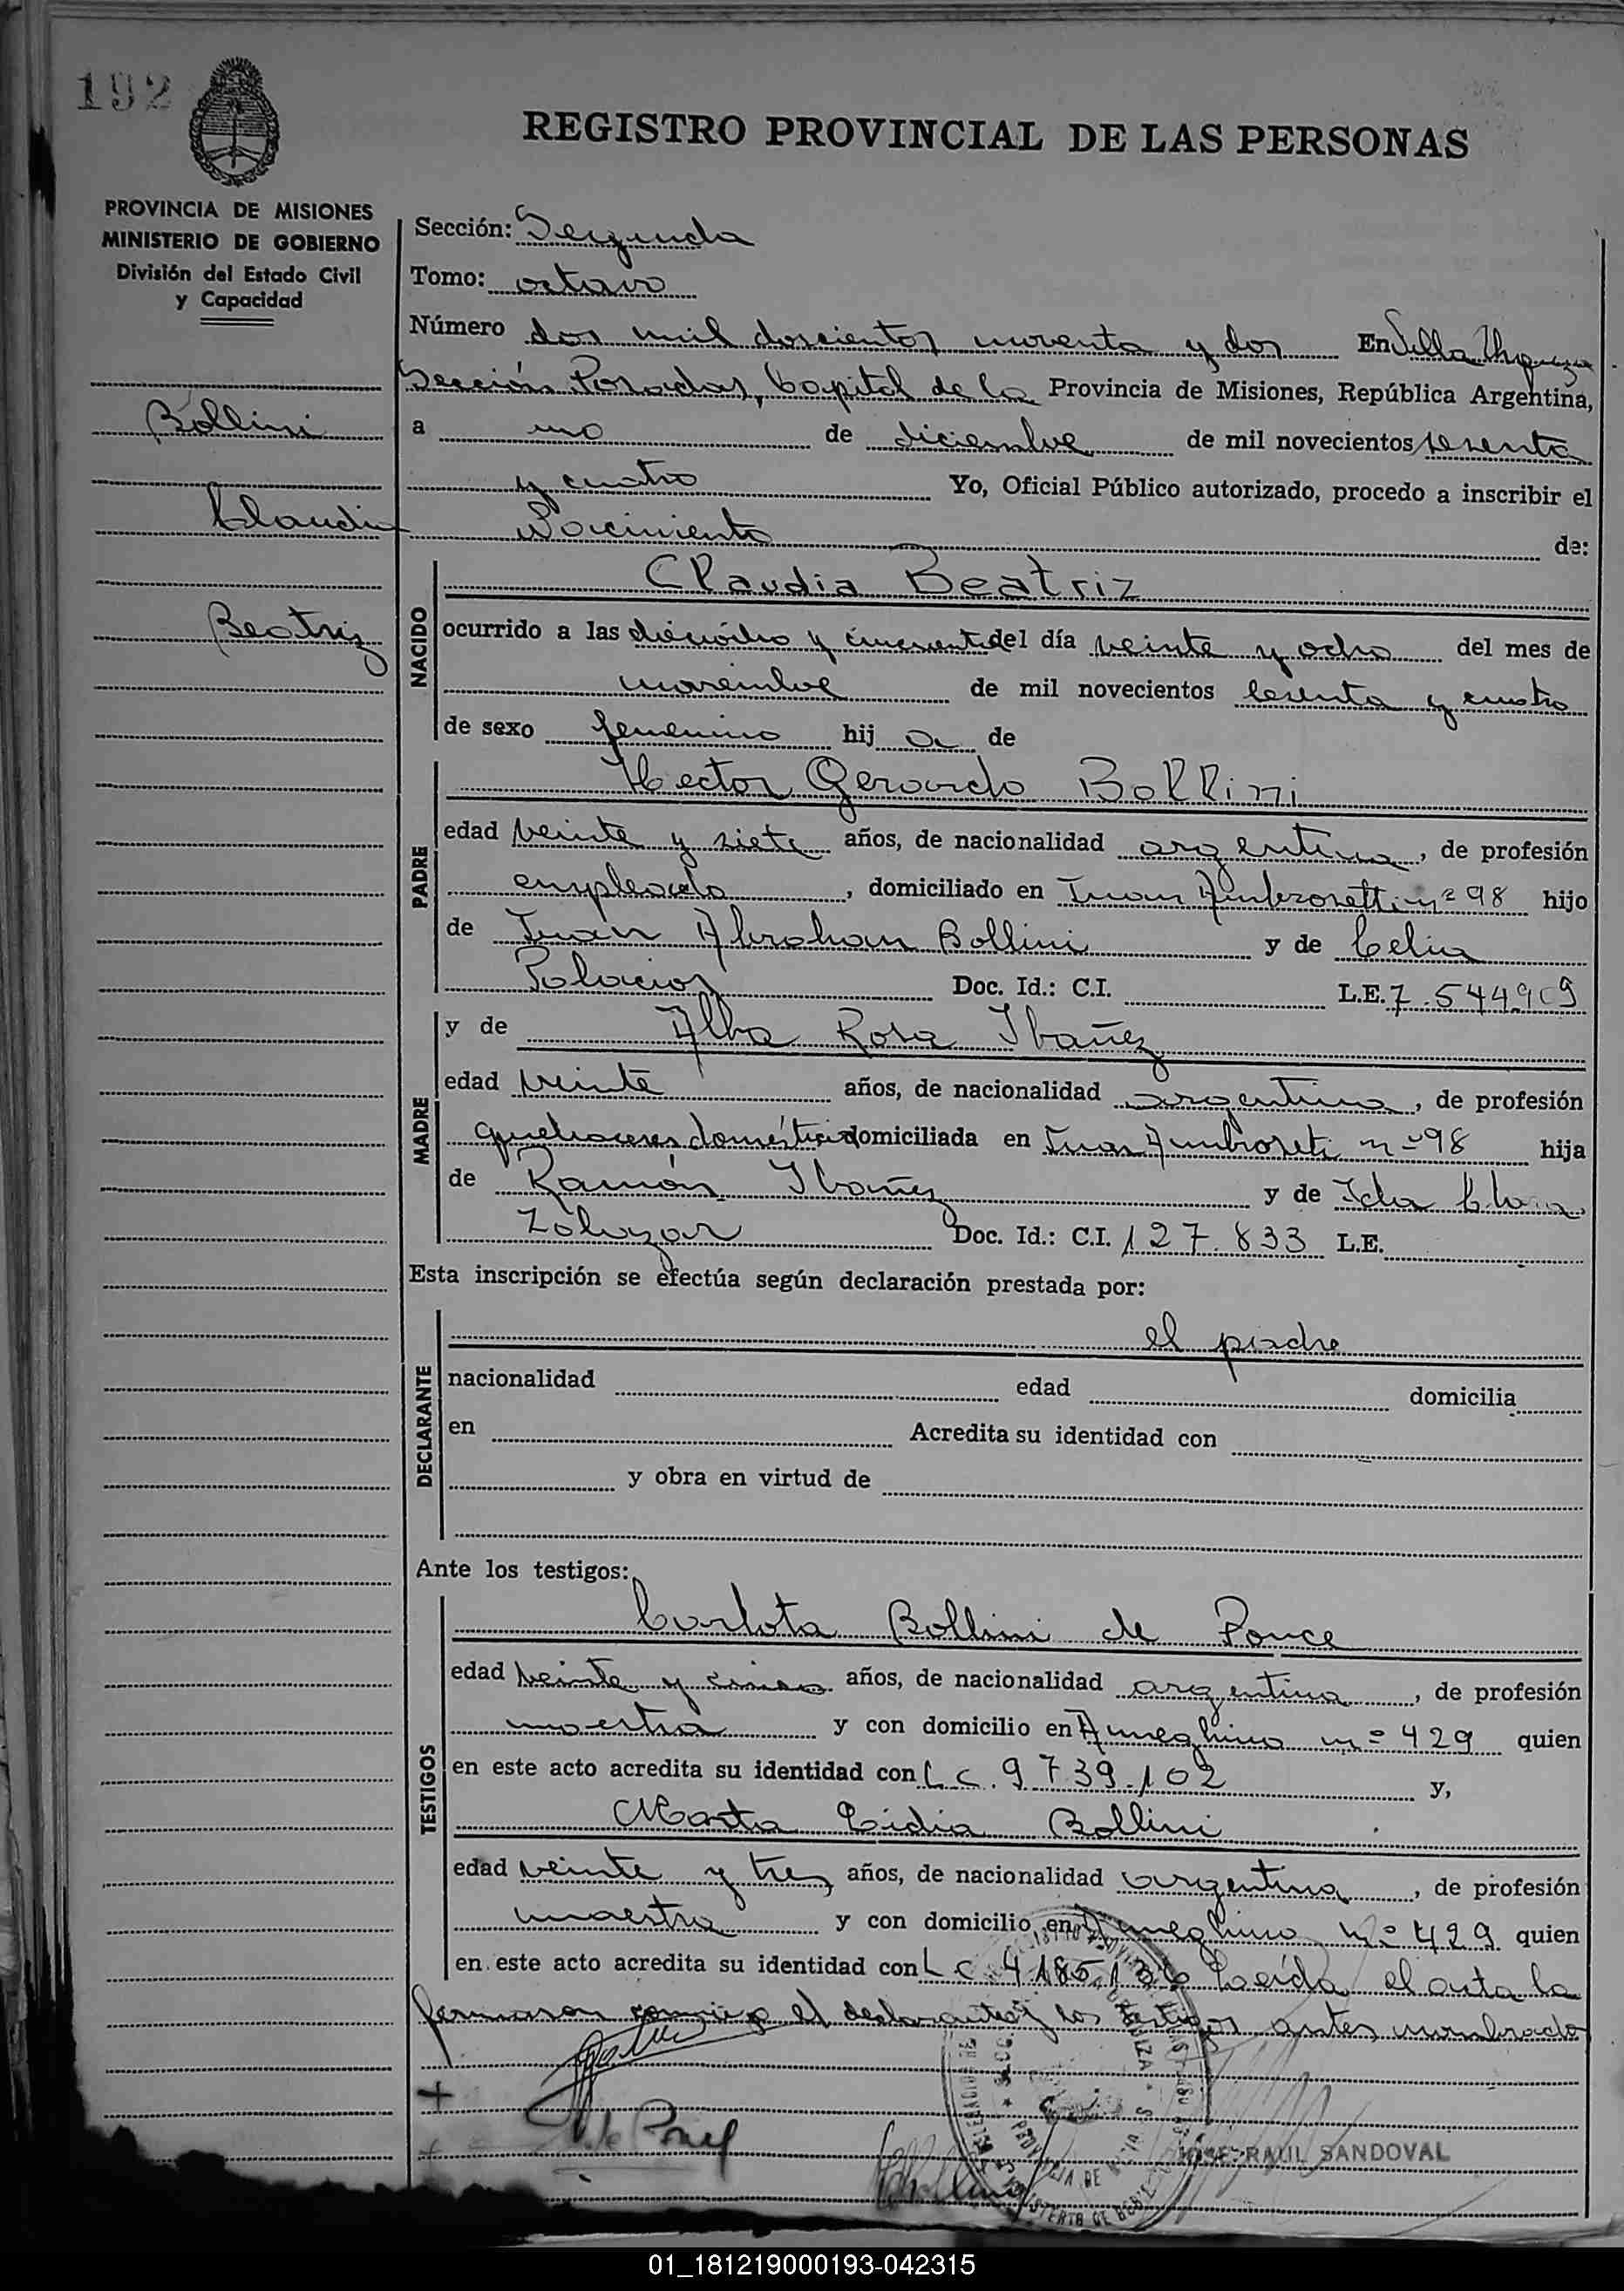 192
REGISTRO PROVINCIAL DE LAS PERSONAS
PROVINCIA DE MISIONES
MINISTERIO DE GOBIERNO
División del Estado Civil
y Capacidad
Sección: Segunda
Tomo: octavo
Número dos mil doscientos noventa y dos En Villa Urquiza
Sección Posadas, Capital de la Provincia de Misiones, República Argentina,
Bollini
a uno de diciembre de mil novecientos sesenta
y cuatro Yo, Oficial Público autorizado, procedo a inscribir el
Claudia
Nacimiento de:
Claudia Beatriz
Beatriz
NACIDO
ocurrido a las dieciocho y cincuenta del día veinte y ocho del mes de
noviembre de mil novecientos sesenta y cuatro
de sexo femenino hij a de
Hector Gerardo Bollini
PADRE
edad veinte y siete años, de nacionalidad argentina, de profesión
empleado, domiciliado en Juan Ambrosetti nº 98 hijo
de Juan Abraham Bollini y de Celia
Palacios Doc. Id.: C.I. L.E. 7.544909
y de Alba Rosa Ibañez
MADRE
edad veinte años, de nacionalidad argentina, de profesión
quehaceres domésticos domiciliada en Juan Ambroseti nº 98 hija
de Ramón Ibañez y de Ida Clara
Zalazar Doc. Id.: C.I. 127.833 L.E.
Esta inscripción se efectúa según declaración prestada por:
el padre
DECLARANTE
nacionalidad edad domicilia
en Acredita su identidad con
y obra en virtud de
Ante los testigos:
Carlota Bollini de Ponce
TESTIGOS
edad veinte y cinco años, de nacionalidad argentina, de profesión
maestra y con domicilio en Ameghino nº 429 quien
en este acto acredita su identidad con L C. 9739.102 y,
Marta Lidia Bollini
edad veinte y tres años, de nacionalidad argentina, de profesión
maestra y con domicilio en Ameghino Nº 429 quien
en este acto acredita su identidad con L C. Leída el acta la
firmaron conmigo el declarante y los testigos antes nombrado
de Ponce
JOSE RAUL SANDOVAL
Bollini
01_181219000193-042315